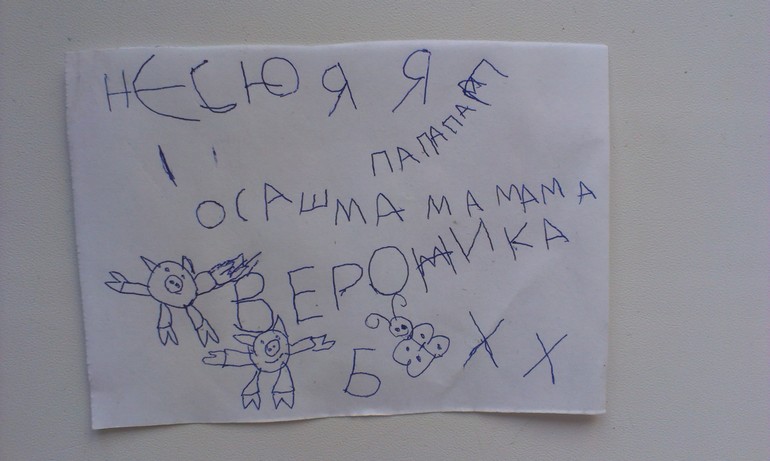 НЕСЮЯ Я
ПАПАПАПАП
ОСАШМА МАМАМА
ВЕРОНИКА
Б Х Х